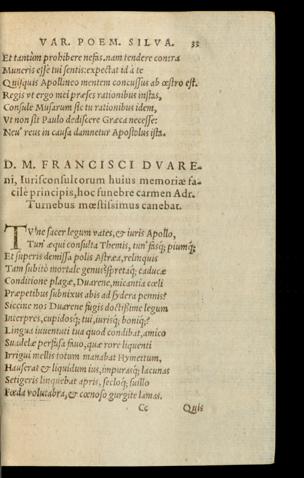 VAR. POEM. SILVA. 33
Et tantùm prohibere nefas. nam tendere contra
Muneris esse tui sentis: expectat id à te
Quisquis Apollineo mentem concussus ab œstro est.
Regis vt ergo mei præses rationibus instas,
Consule Musarum sic tu rationibus idem,
Vt non sit Paulo dediscere Græca necesse:
Neu' reus in causa damnetur Apostolus ista.
D. M. FRANCISCI DVARE-
ni, Iurisconsultorum huius memoriæ fa-
cilè principis, hoc funebre carmen Adr.
Turnebus mœstissimus canebat.
TVne sacer legum vates, & iuris Apollo,
Tun' æqui consulta Themis, tun' fásq; piumq;
Et superis demissa polis Astræa, relinquis
Tam subitò mortale genus? spretaq; caducæ
Conditione plagæ, Duarene, micantia cœli
Præpetibus subnixus abis ad sydera pennis?
Siccine nos Duarene fugis doctissime legum
Interpres, cupidosq; tui, iurisq; boniq;?
Lingua iuuentuti tua quod condibat, amico
Suadelæ perfusa fauo, quæ rore liquenti
Irrigui mellis totum manabat Hymettum,
Hauserat & liquidum ius, impurasq; lacunas
Setigeris linquebat apris, secloq; suillo
Fœda volutabra, & cœnoso gurgite lamas.
Cc Quis